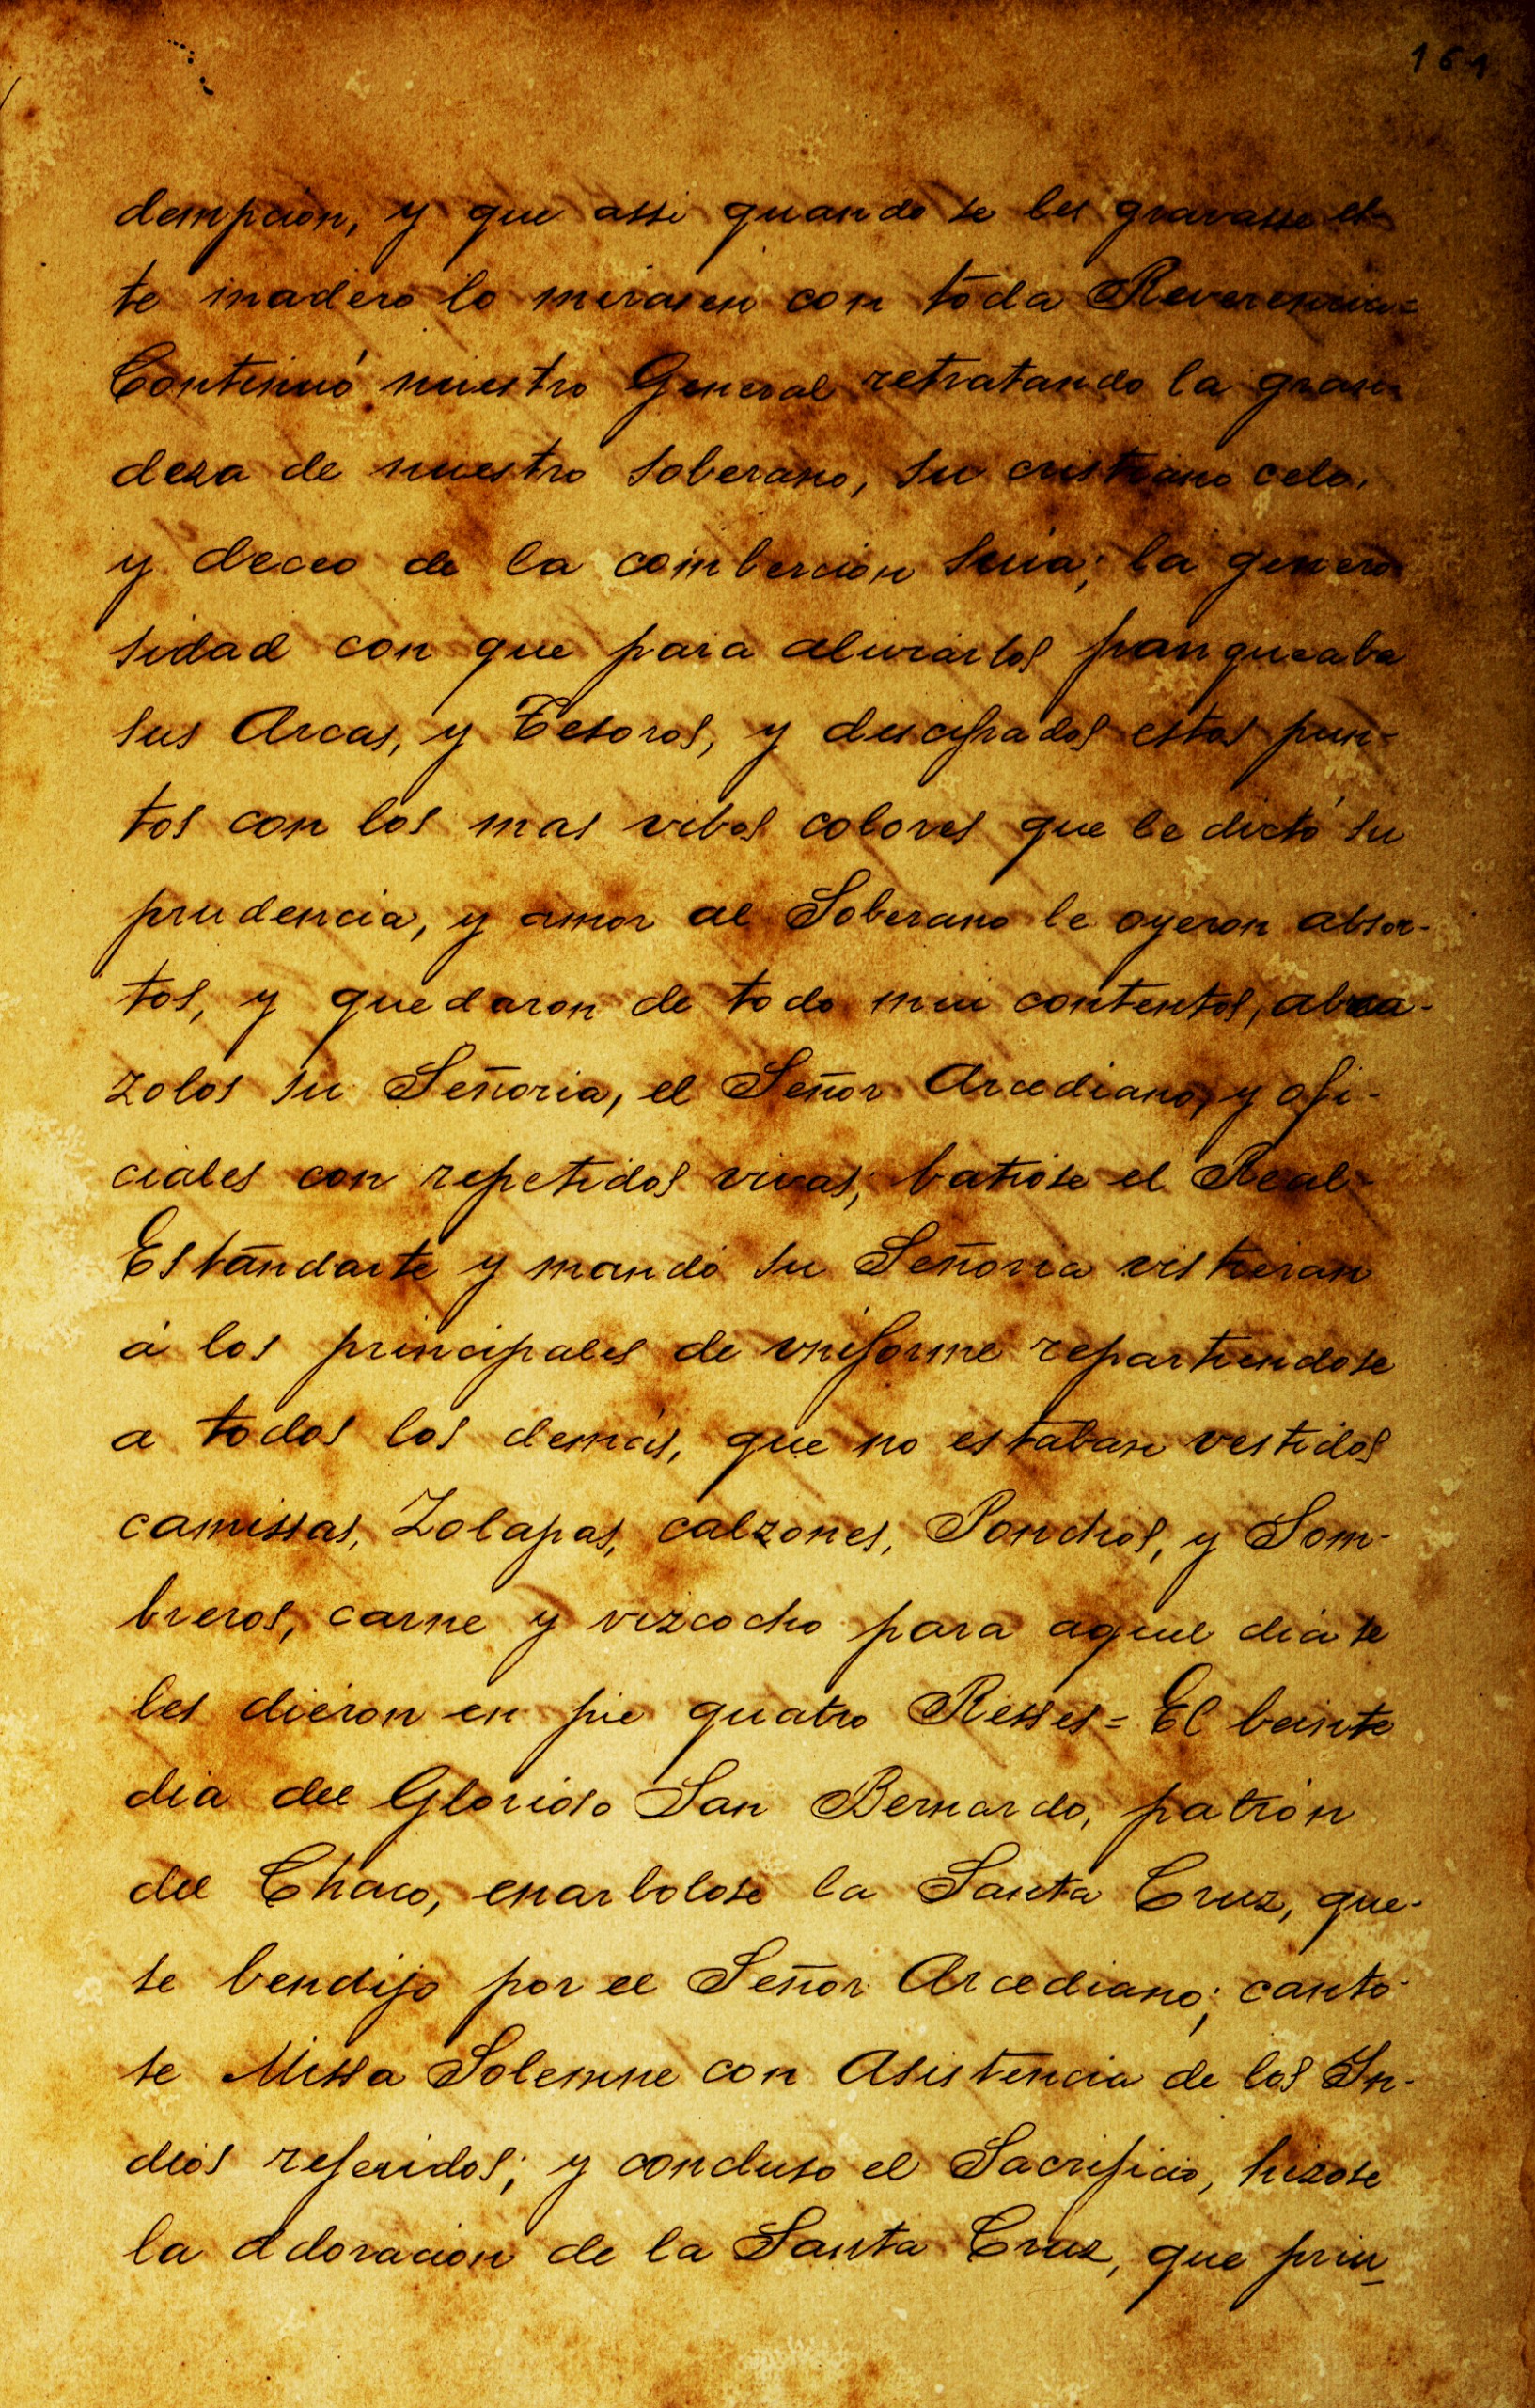 161
dempcion, y que assi quando se les gravasse es-
te madero lo mirasen con toda Reverencia=
Continuó nuestro General retratando la gran-
deza de nuestro soberano, su cristiano celo,
y deceo de la combercion suia; la genero
sidad con que para aliviarlos franqueaba
sus Arcas, y Tesoros, y descifrados estos pun-
tos con los mas vibos colores que le dictó su
prudencia, y amor al Soberano le oyeron absor-
tos, y quedaron de todo mui contentos, abra-
zolos su Señoria, el Señor Arcediano, y ofi-
ciales con repetidos vivas; batiose el Real-
Estandarte y mandó su Señoria vistieran
á los principales de vniforme repartiendose
a todos los demás, que no estaban vestidos
camissas, Zolapas, calzones, Ponchos, y Som-
breros, carne y vizcocho para aquel dia se
les dieron en pie quatro Resses= El beinte
dia del Glorioso San Bernardo, patrón
del Chaco, enarbolose la Santa Cruz, que-
se bendijo por el Señor Arcediano; canto-
se Missa Solemne con Asistencia de los In-
dios referidos; y concluso el Sacrificio, hizose
la adoracion de la Santa Cruz, que prin